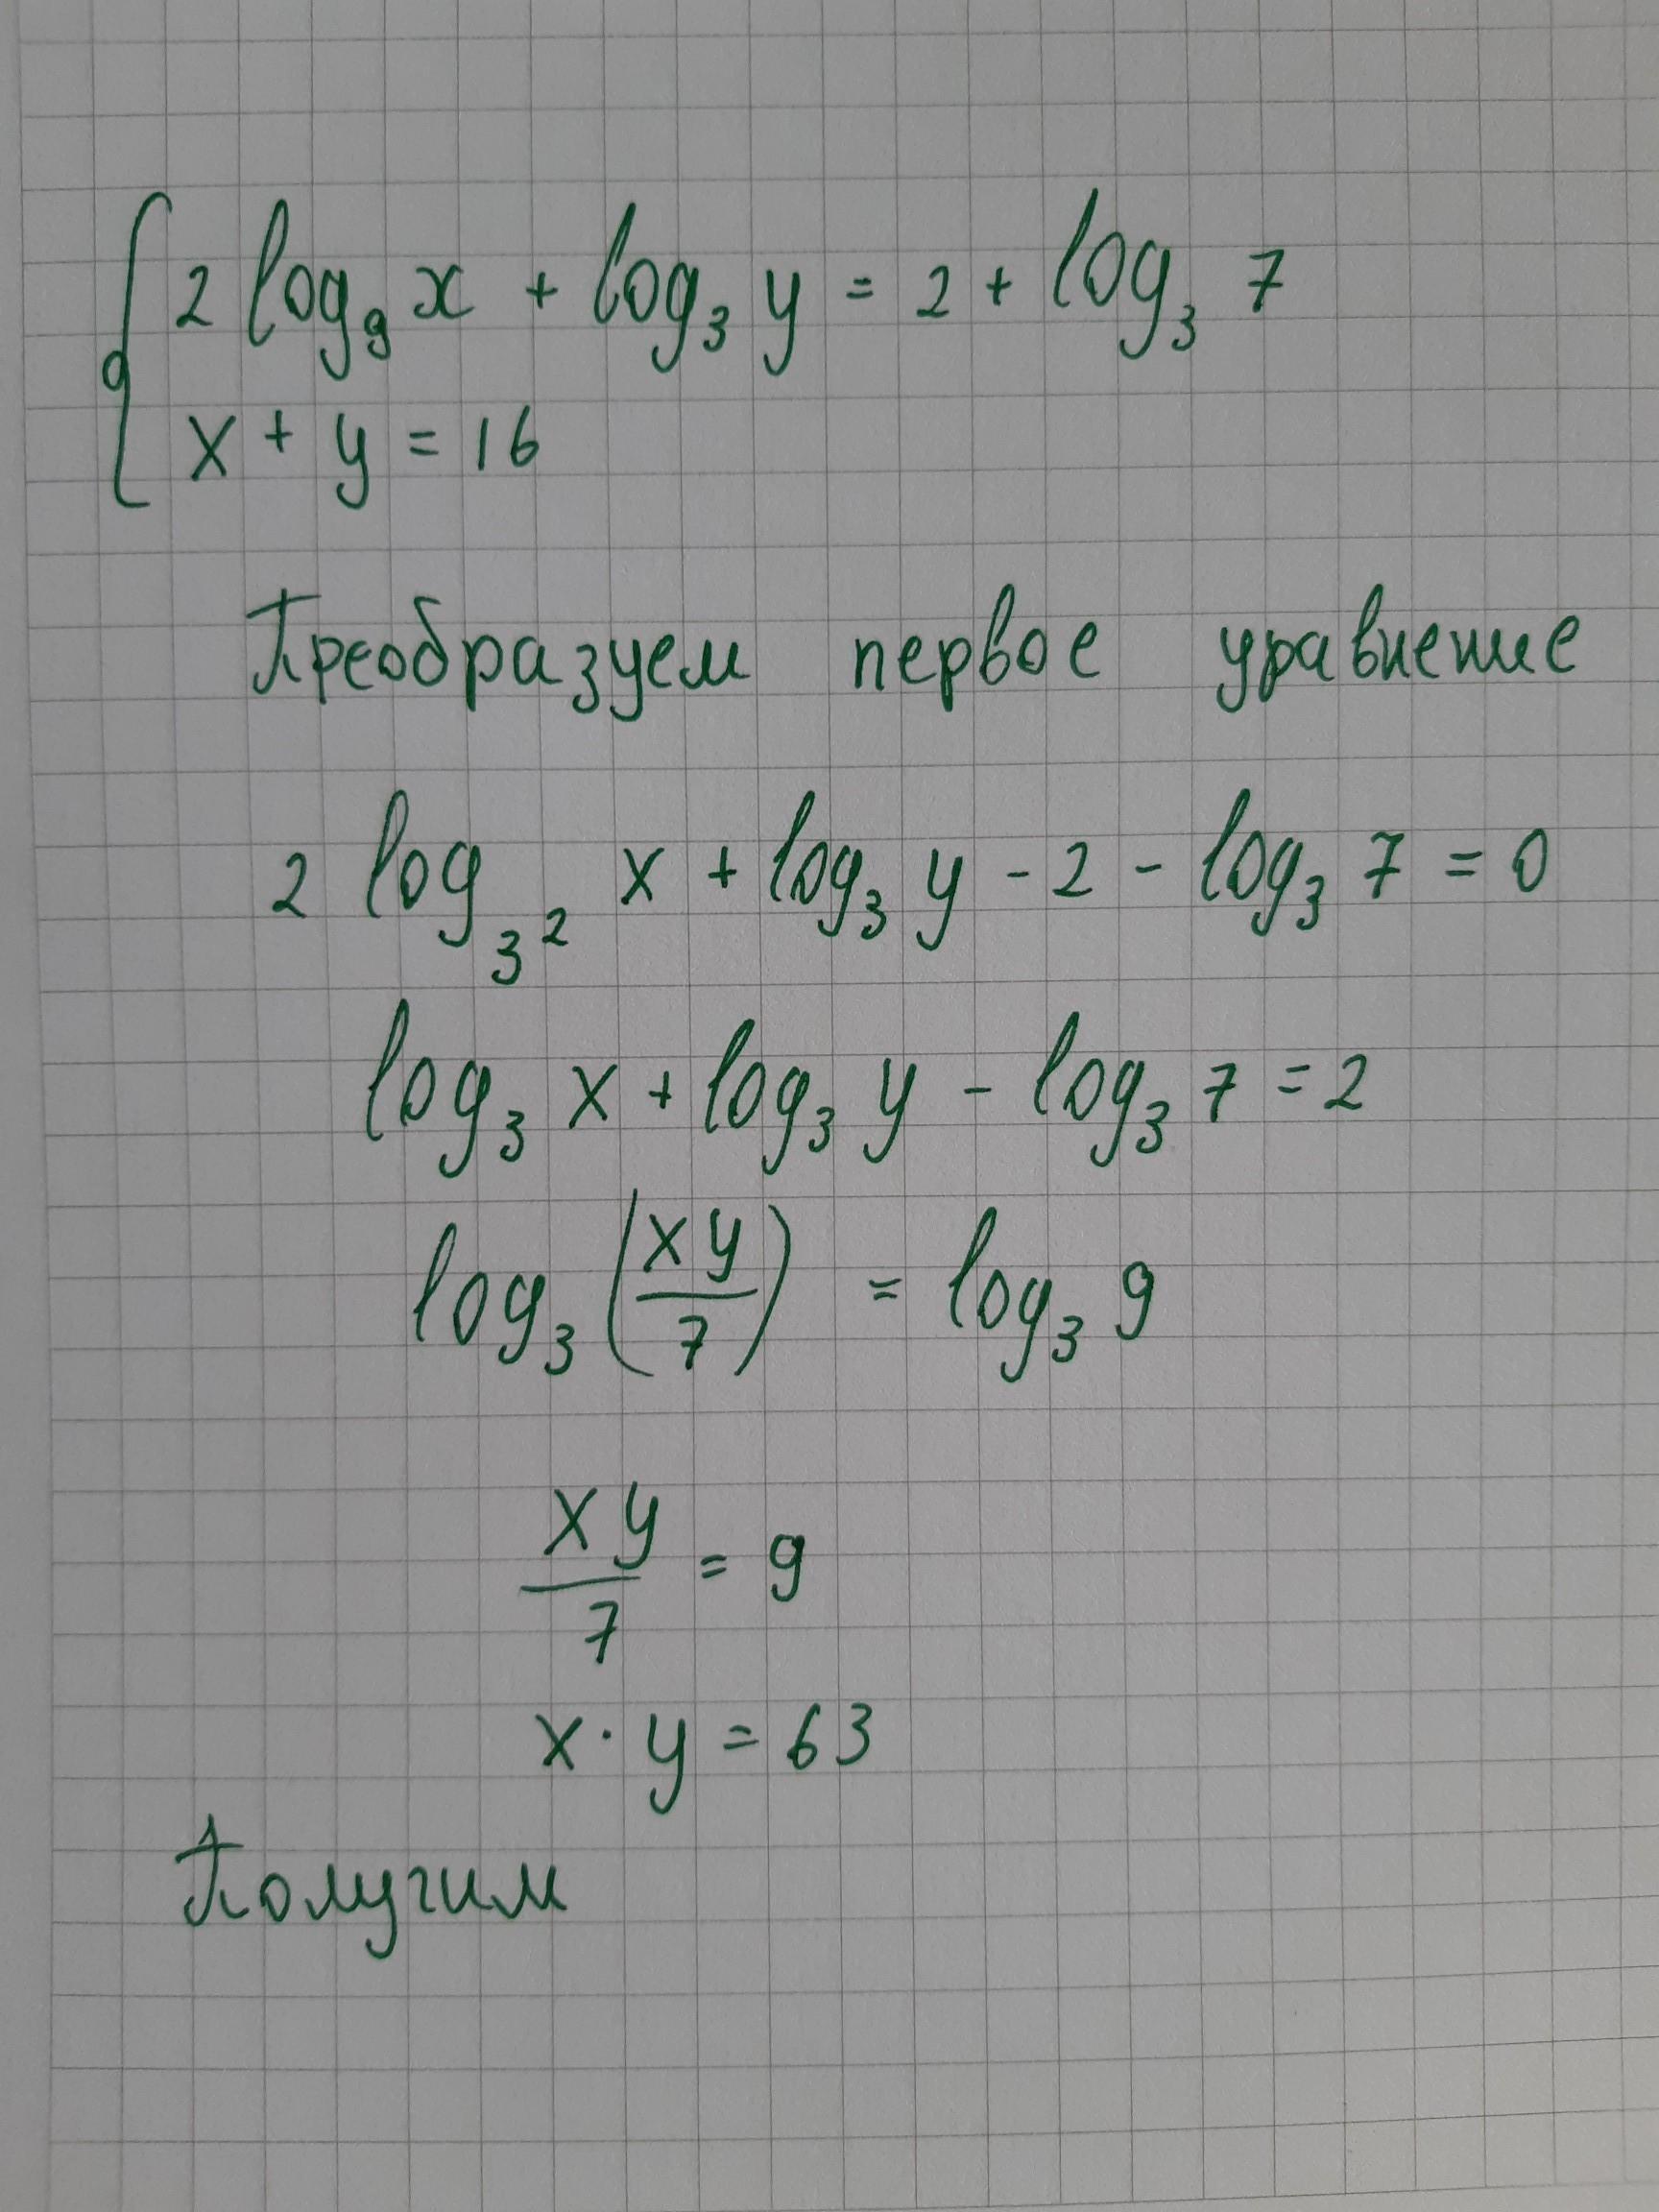 2 log₉ x + log₃ y = 2 + log₃ 7
x + y = 16
Преобразуем первое уравнение
2 log₃² x + log₃ y - 2 - log₃ 7 = 0
log₃ x + log₃ y - log₃ 7 = 2
log₃ (xy/7) = log₃ 9
xy/7 = 9
x · y = 63
Получим